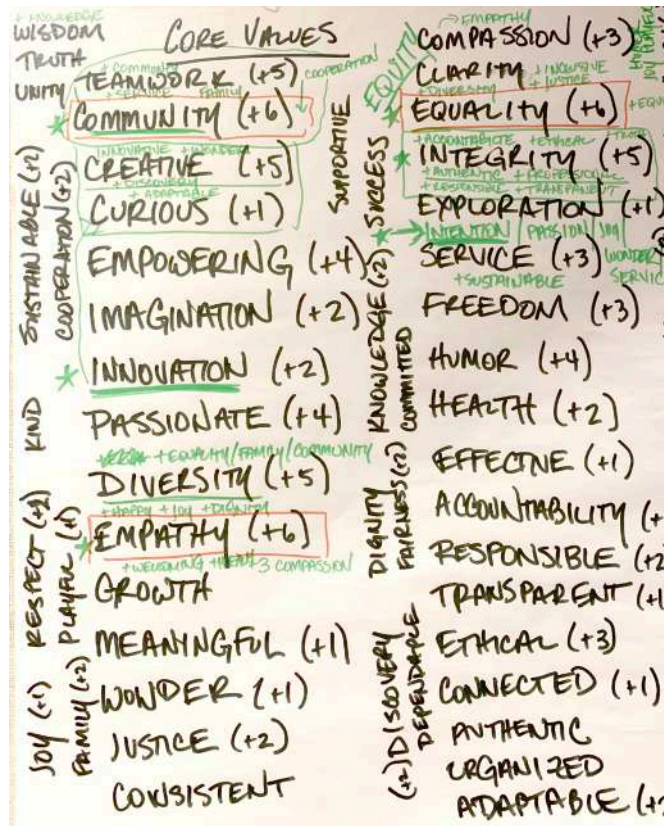 + KNOWLEDGE
WISDOM
TRUTH
UNITY
CORE VALUES
+ COMMUNITY
TEAMWORK (+5)
+ SERVICE FAMILY
COOPERATION
COMMUNITY (+6)
INNOVATIVE + WONDER
CREATIVE (+5)
+ DISCOVERY
+ ADAPTABLE
CURIOUS (+1)
EMPOWERING (+4)
IMAGINATION (+2)
INNOVATION (+2)
PASSIONATE (+4)
+ EQUALITY/FAMILY/COMMUNITY
DIVERSITY (+5)
+ HAPPY + JOY + DIGNITY
EMPATHY (+6)
+ WELCOMING + HEART 3 COMPASSION
GROWTH
MEANINGFUL (+1)
WONDER (+1)
JUSTICE (+2)
CONSISTENT
SUSTAINABLE (+2)
COOPERATION (+2)
KIND
RESPECT (+2)
PLAYFUL (+1)
JOY (+1)
FAMILY (+2)
SUPPORTIVE
SUCCESS
KNOWLEDGE (+2)
COMMITTED
DIGNITY
FAIRNESS (+2)
(+2) DISCOVERY
DEPENDABLE
EQUITY
→ EMPATHY
COMPASSION (+3)
CLARITY
+ INCLUSIVE
+ DIVERSITY + JUSTICE
EQUALITY (+6)
+ ACCOUNTABLE + ETHICAL + TRUTH
INTEGRITY (+5)
+ AUTHENTIC + PROFESSIONAL
+ RESPONSIBLE + TRANSPARENT
EXPLORATION (+1)
INTENTION PASSION JOY
WONDER
SERVICE (+3)
+ SUSTAINABLE
FREEDOM (+3)
HUMOR (+4)
HEALTH (+2)
EFFECTIVE (+1)
ACCOUNTABILITY (+
RESPONSIBLE (+2
TRANSPARENT (+1
ETHICAL (+3)
CONNECTED (+1)
AUTHENTIC
ORGANIZED
ADAPTABLE (+